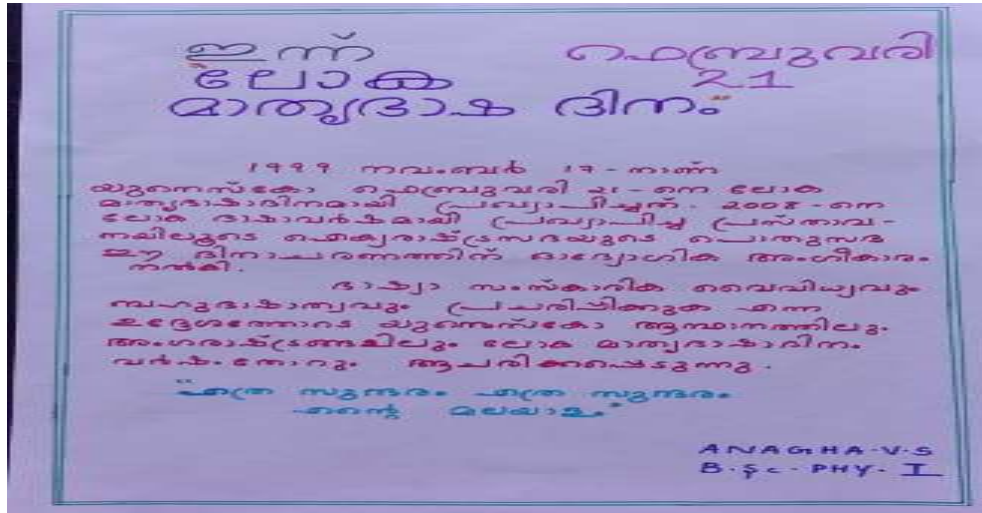 ഇന്ന് ഫെബ്രുവരി 21
"ലോക
മാതൃഭാഷ ദിനം"
1999 നവംബർ 17-നാണ്
യുനെസ്കോ ഫെബ്രുവരി 21-നെ ലോക
മാതൃഭാഷാദിനമായി പ്രഖ്യാപിച്ചത്. 2008-നെ
ലോക ഭാഷാവർഷമായി പ്രഖ്യാപിച്ച പ്രസ്താവ-
നയിലൂടെ ഐക്യരാഷ്ട്രസഭയുടെ പൊതുസഭ
ഈ ദിനാചരണത്തിന് ഔദ്യോഗിക അംഗീകാരം
നൽകി.
ഭാഷാ സംസ്കാരിക വൈവിധ്യവും
ബഹുഭാഷാത്വവും പ്രചരിപ്പിക്കുക എന്ന
ഉദ്ദേശത്തോടെ യുണെസ്കോ ആസ്ഥാനത്തിലും
അംഗരാഷ്ട്രങ്ങളിലും ലോക മാതൃഭാഷാദിനം
വർഷംതോറും ആചരിക്കപ്പെടുന്നു.
"എത്ര സുന്ദരം എത്ര സുന്ദരം
എന്റെ മലയാളം"
ANAGHA.V.S
B.Sc. PHY. I